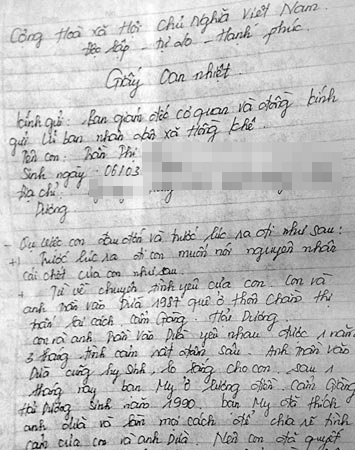 Cộng Hoà xã Hội chủ nghĩa Việt Nam.
Độc lập - tự do - Hạnh phúc.
Giấy Oan nhiệt.
kính gửi: ban giám đốc cơ quan và đồng kính
gửi Uỷ ban nhân dân xã Hồng khê.
Tên con: Trần Thị
Sinh ngày: 06/03
Địa chỉ:
Dương
con đau đớn và trước lúc ra đi như sau:
+) Trước lúc ra đi con muốn nói nguyên nhân
cái chết của con như sau
+ Từ về chuyện tình yêu của con. Con và
anh Trần văn Duẩ 1987 quê ở thôn Chăm thị
trấn lai cách Cẩm Giàng. Hải Dương.
con và anh Trần văn Duẩ yêu nhau được 1 năm
3 tháng tình cảm rất đậm sâu. Anh Trần văn
Duẩ cũng hy sinh lo lắng cho con. sau 1
tháng nay bạn My ở lương điền. Cẩm Giàng
Hải Dương sinh năm 1990. bạn My đã thích
anh duẩ và tìm mọi cách để chia rẽ tình
cảm của con và anh Duẩ. Nên con đã quyết